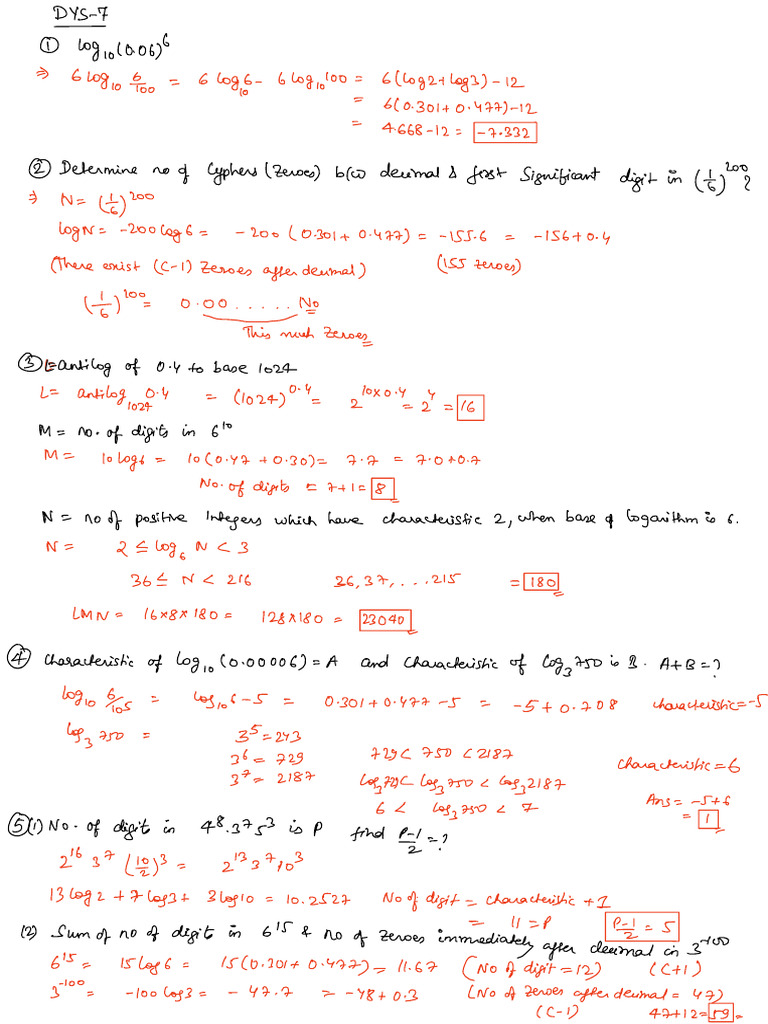 DYS-7
① log₁₀(0.06)⁶
⇒ 6 log₁₀ 6/100 = 6 log₁₀6 - 6 log₁₀100 = 6(log2+log3)-12
= 6(0.301+0.477)-12
= 4.668-12 = -7.332
② Determine no of Cyphers (Zeroes) b/w decimal & first Significant digit in (1/6)²⁰⁰ ?
⇒ N = (1/6)²⁰⁰
logN = -200log6 = -200(0.301+0.477) = -155.6 = -156+0.4
(There exist (C-1) Zeroes after decimal) (155 zeroes)
(1/6)²⁰⁰ = 0.00 ...... No
This much Zeroes
③ L=antilog of 0.4 to base 1024
L= antilog₁₀₂₄ 0.4 = (1024)^0.4 = 2^10×0.4 = 2⁴ = 16
M = no. of digits in 6¹⁰
M = 10log6 = 10(0.47+0.30) = 7.7 = 7.0+0.7
No. of digits = 7+1 = 8
N = no of positive Integers which have characteristic 2, when base of logarithm is 6.
N = 2 ≤ log₆ N < 3
36 ≤ N < 216 36,37, ... 215 = 180
LMN = 16×8×180 = 128×180 = 23040
④ Characteristic of log₁₀(0.00006) = A and Characteristic of log₃750 is B. A+B=?
log₁₀ 6/10⁵ = log₁₀6-5 = 0.301+0.477-5 = -5+0.708 characteristic=-5
log₃ 750 = 3⁵=243
3⁶ = 729 729 < 750 < 2187
3⁷ = 2187 log₃729 < log₃750 < log₃2187 characteristic = 6
6 < log₃750 < 7 Ans = -5+6
= 1
⑤ (1) No. of digit in 4⁸.3⁷5³ is P find P-1/2 = ?
2¹⁶ 3⁷ (10/2)³ = 2¹³ 3⁷ 10³
13log2 + 7log3 + 3log10 = 10.2527 No of digit = characteristic +1
= 11 = P P-1/2 = 5
(2) Sum of no of digit in 6¹⁵ & no of zeroes immediately after decimal in 3⁻¹⁰⁰
6¹⁵ = 15log6 = 15(0.301+0.477) = 11.67 (No of digit = 12) (C+1)
3⁻¹⁰⁰ = -100log3 = -47.7 = -48+0.3 (No of zeroes after decimal = 47)
(C-1) 47+12=59